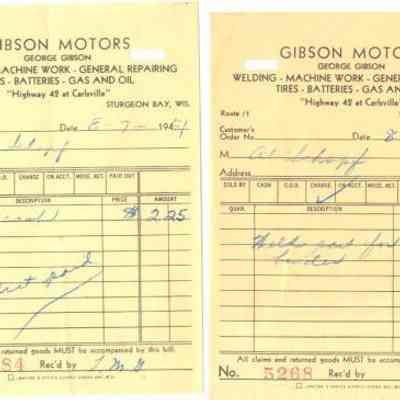 GIBSON MOTORS
GEORGE GIBSON
MACHINE WORK - GENERAL REPAIRING
S - BATTERIES - GAS AND OIL
"Highway 42 at Carlsville"
STURGEON BAY, WIS.
Date 8-7- 1951
C.O.D. CHARGE ON ACCT. MDSE. RET. PAID OUT
DESCRIPTION PRICE AMOUNT
$ 2.25
paid
returned goods MUST be accompanied by this bill.
84 Rec'd by
GIBSON MOTO
GEORGE GIBSON
WELDING - MACHINE WORK - GENER
TIRES - BATTERIES - GAS AN
"Highway 42 at Carlsville"
Route #1
Customer's
Order No. Date 8
M
Address
SOLD BY CASH C.O.D. CHARGE ON ACCT. MDSE. RE
QUAN. DESCRIPTION
Welded part for
All claims and returned goods MUST be accompa
No. 5268 Rec'd by